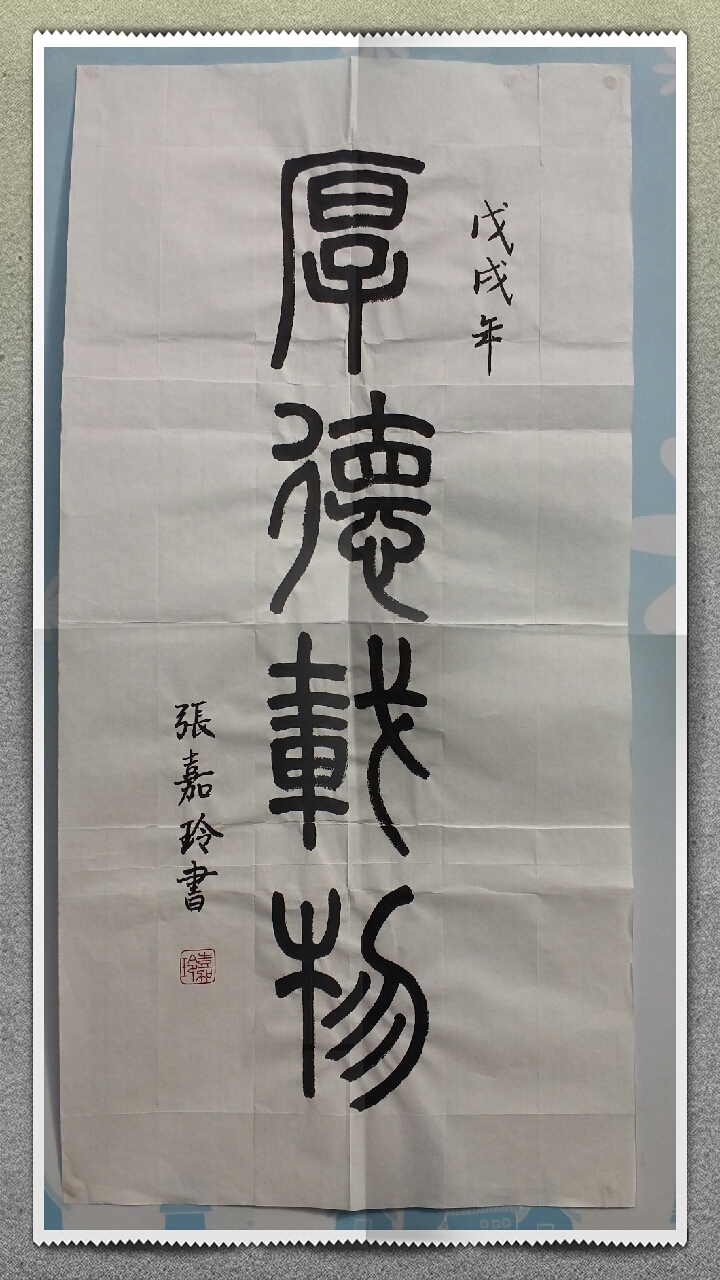 戊戌年
厚德載物
張嘉玲書
嘉玲